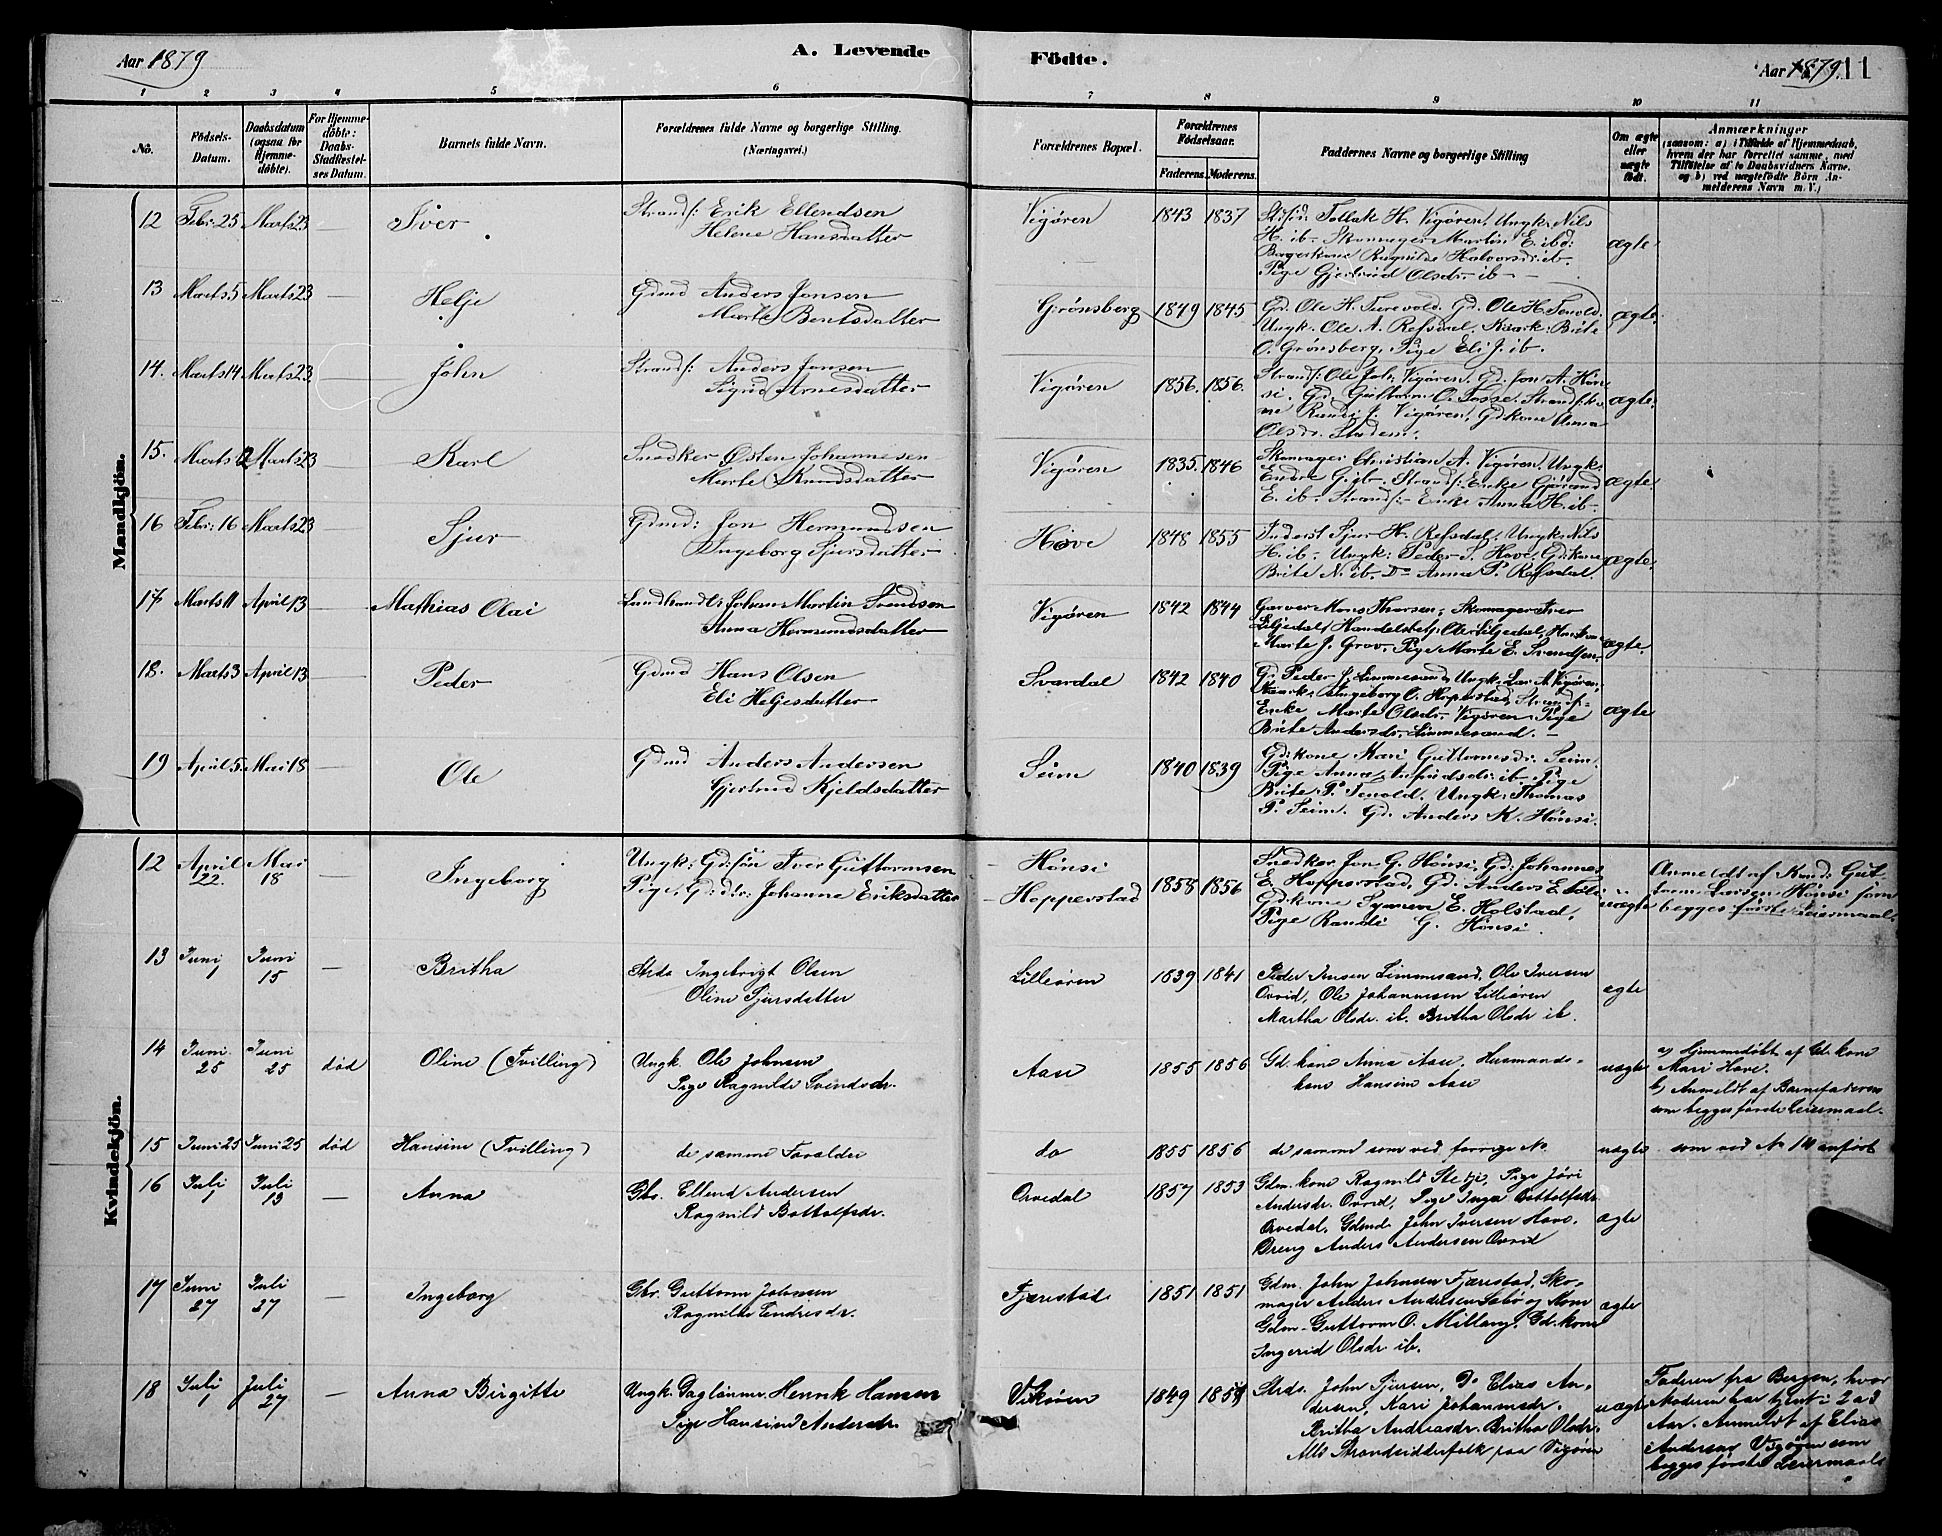 Aar 1879
A. Levende
Födte.
Aar 1879.
11
1 2 3 4 5 6 7 8 9 10 11
No.
Födsels-
Datum.
Daabsdatum
(ogsaa for
Hjemme-
döbte).
For Hjemme-
döbte:
Daabs-
Stadfæstel-
ses Datum.
Barnets fulde Navn.
Forældrenes fulde Navne og borgerlige Stilling.
(Næringsvei.)
Forældrenes Bopæl.
Forældrenes
Födselsaar.
Faderens. Moderens.
Faddernes Navne og borgerlige Stilling
Om ægte
eller
uægte
födt.
Anmærkninger
(saasom: a) i Tilfælde af Hjemmedaab,
hvem der har forrettet samme, med
Tilföielse af to Daabsvidners Navne.
og b) ved uægtefödte Börn An-
melderens Navn m. V.)
Mandkjön.
12 Febr: 25 Marts 23 — Iver
Strands: Erik Ellendsen
Helene Hansdatter
Vigøren 1843 1837
Strdsd. Tollak H. Vigøren, Ungk: Nils
H. ib- Skomager Martin E. ibd:
Bagerkone Ragnilde Halvorsdr. ib-
Pige Gjertrud Olsdr. ib -
ægte
13 Marts 5 Marts 23 — Helje
Gdmd Anders Jonsen
Marte Bentsdatter
Grønsberg 1849 1845
Gd. Ole H. Turevold. Gd. Ole H. Tenold.
Ungk. Ole A. Refsdal. Kaark: Brite
O. Grønsberg, Pige Eli J. ib.
ægte
14. Marts 14 Marts 23 — John
Strands: Anders Jonsen
Sigrid Arnesdatter
Vigøren 1856. 1856.
Strands: Ole Joh. Vigøren. Gd. Jon A. Høn-
si. Gd. Guttorm O. Tosse. Strands: ko-
ne Randi J. Vigøren, Gdkone Anna
Olsdr. Stadem.
ægte
15. Marts 12 Marts 23 — Karl
Snedker Østen Johannesen
Marte Knudsdatter
Vigøren 1835. 1846
Skomager Christian A. Vigøren. Ungk:
Endre G ib- Strands: Enke Gjørand
E. ib- Strands:- Enke Anna H. ib-
ægte
16 Febr: 16 Marts 23 — Sjur
Gdmd: Jon Hermundsen
Ingeborg Sjursdatter
Hove 1848 1855
Inderst Sjur H. Refsdal, Ungk. Nils
H. ib- Ungk: Peder S. Hove. Gd:kone
Brite N. ib. D= Anna P. Refsdal.
ægte
17 Marts 11 April 13 — Mathias Olai
Landhandlr. Johan Martin Svendsen
Anna Hermundsdatter
Vigøren 1842 1844
Garver Mons Thorsen, Skomager Iver
Liljedal, Handelsbetj: Ole Liljedal,
Marte J. Grov. Pige Marte E. Svendsen.
ægte
18. Marts 3 April 13 — Peder
Gdmd Hans Olsen
Eli Heljesdatter
Svardal 1842 1840
Gd. Peder J. Limmesand, Ungk. Lars A. Vigøren,
Kaark: Ingeborg O. Hopperstad, Strands-
Enke Marte Olsdr. Vigøren, Pige
Brite Andersdr. Limmesand. -
ægte
19 April 5 Mai 18 — Ole
Gdmd Anders Andersen
Gjertrud Kjeldsdatter
Seim 1840 1839
Gdskone Kari Guttormsdr. Seim.
Pige Anna Anfindsdr. ib- Pige
Brite P. Tenold. Ungk: Thomas
P. Seim. Gd. Anders K. Hønsi.
Kvindekjön.
12 April 22. Mai 18 Ingeborg
Ungk: Gd:søn Iver Guttormsen
Pige, G:dtr: Johanne Eriksdatter
Hønsi
Hopperstad
1858 1856
Snedker Jon G. Hønsi, Gd. Johannes
E. Hopperstad, Gd. Anders E. Bøli
Gdkone Synneva E. Holstad,
Pige Randi G. Hønsi.
uægte
Anmeldt af Knud Gut-
torm Larsen Hønsi som
begges første Leiermaal.
13 Juni 1 Juni 15 — Britha
Strds Ingebrigt Olsen
Oline Sjursdatter
Lilleøren 1839 1841
Peder Iversen Limmesand, Ole Iversen
Orvid, Ole Johannesen Lilleøren
Martha Olsdr. ib. Britha Olsdr ib.
ægte
14 Juni 25 Juni 25 død Oline (Tvilling)
Ungk. Ole Johnsen
Pige Ragnilde Svendsdr.
Aase 1855 1856
Gd. kone Anna Aase, Husmands-
kone Hansine Aase
uægte
a) Hjemmedøbt af Gd. kone
Mari Hove.
b) Anmeldt af Barnefaderen
som begges første Leiermaal.
15 Juni 25 Juni 25 død Hansine (Tvilling)
de samme Forældre
do 1855 1856
de samme som ved forrige No
uægte
som ved No 14 anført
16 Juli 1 Juli 13 — Anna
Gbr. Ellend Andersen
Ragnild Bottolfsdr.
Orvedal 1857 1853
Gdm. kone Ragnild Stetje, Pige Jøri
Andersdr. Orvid, Pige Inga Bottolfsdr
Orvedal, Gdmd. John Iversen Hove.
Dreng Anders Andersen Orvid
ægte
17 Juni 27 Juli 27 — Ingeborg
Gbr. Guttorm Johnsen
Ragnilde Endresdr.
Fjærestad 1851 1851
Gdm. John Johnsen Fjærestad, Sko-
mager Anders Andersen Sabø og Kone
Gdm. Guttorm O. Millang, Gd. kone
Ingerid Olsdr ib.
ægte
18 Juli 1 Juli 27 — Anna Birgitte
Ungk. Daglønner. Henrik Hansen
Pige Hansine Andersdr.
Vikøren 1849
Strds. John Sjursen, Do Elias An-
dersen, Kari Johannesdr.
Britha Andreasdr. Britha Olsdr.
Alle Strandsidderfolk paa Vigøren
uægte
Faderen fra Bergen, hvor
Moderen har tjent i 2 a 3
Aar. Anmeldt af Elias
Andersen Vigøren som
begges første Leiermaal